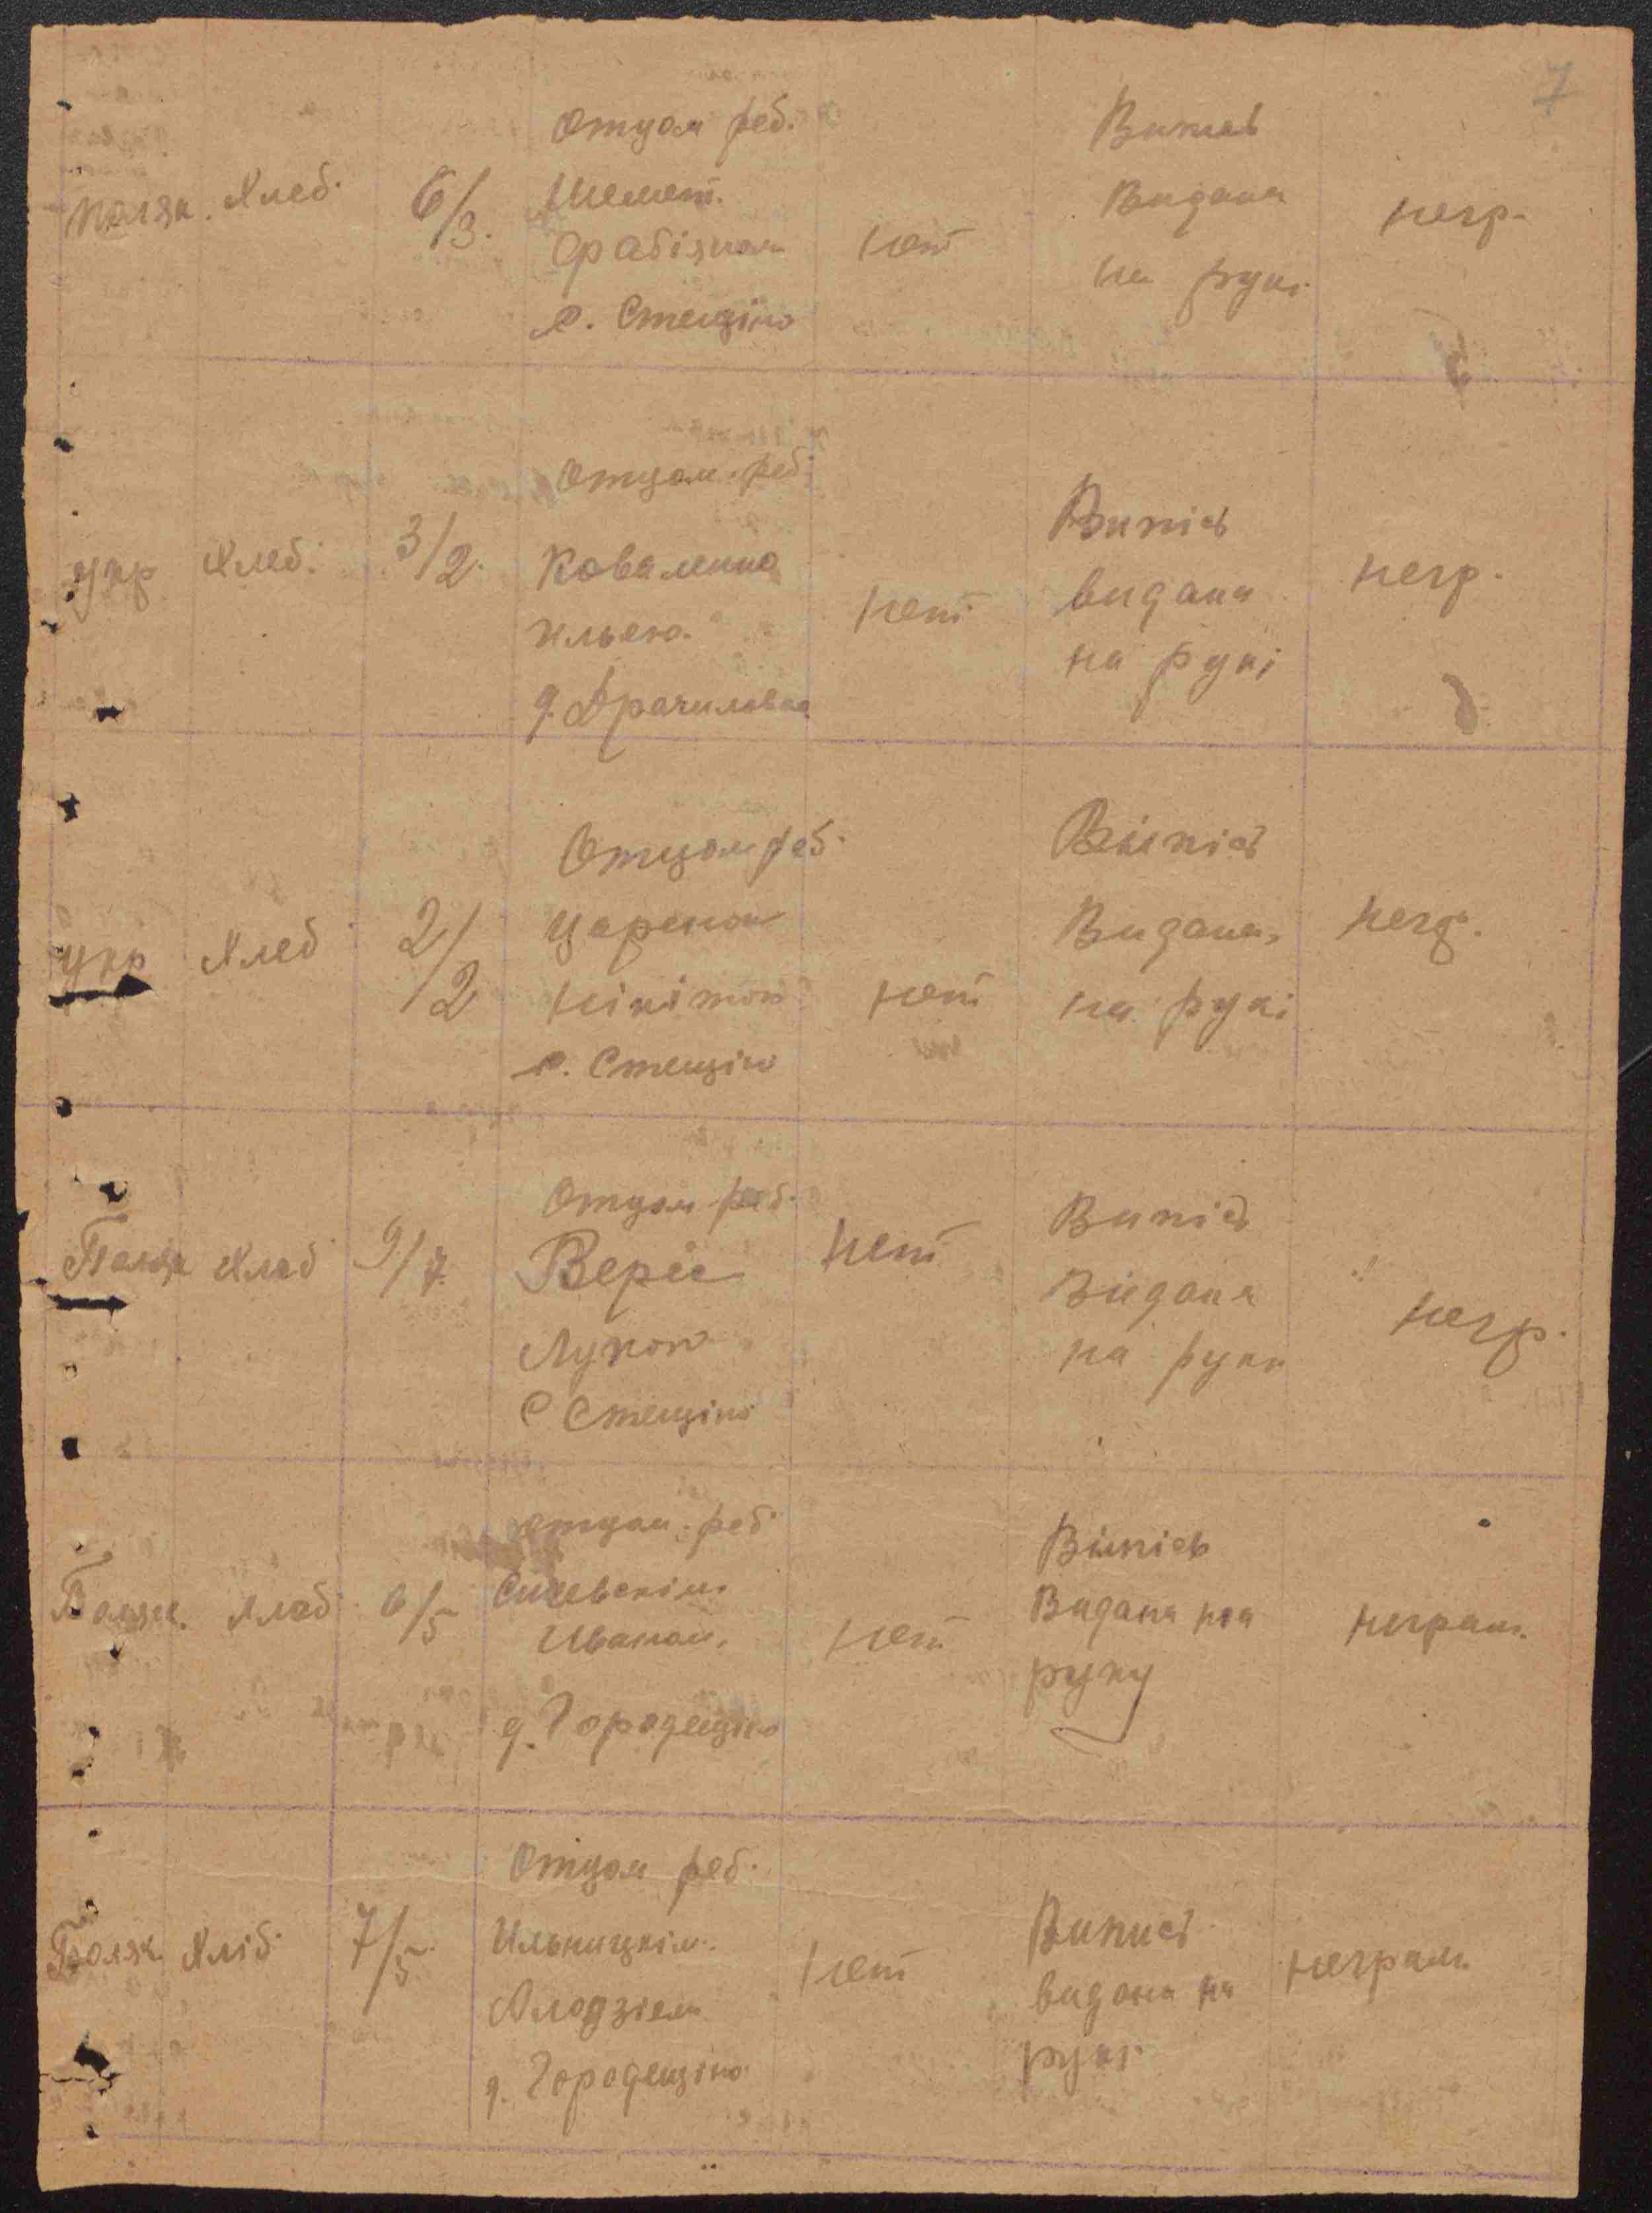 7
поляк. Хлеб. 6/3. Отцом реб. Шемет. Фабіяном с. Стещіно нет Випісь Видана на рукі негр.
укр Хлеб. 3/2. Отцом реб. Коваленко Ильею. д. Драчиловка нет Випісь видана на рукі негр.
укр Хлеб 2/2 Отцом реб. Цареном Нікітою с. Стещіно нет Випісь Видана на рукі негр.
Поляк Хлеб 9/7. Отцом реб. Верес Лукою С Стещіно нет Випісь Видана на руки негр.
Поляк. Хлеб. 6/5 отцом реб. Иваном. д. Городещіно нет Випісь Видана на руку неграм.
Поляк. Хліб. 7/5. Отцом реб. Ильницкім. д. Городещіно нет Випись видана на рукі неграм.